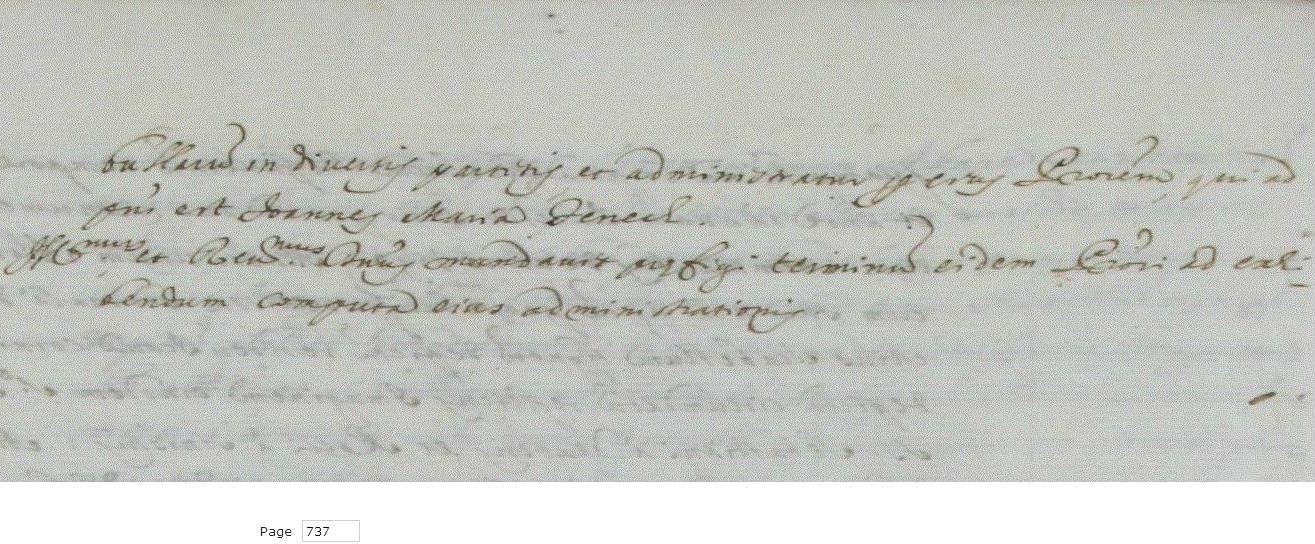 bullarū in diversis partitis et administratur per eius Priorem, qui ad
pns est Joannes Maria
Illmus et Revmus Dnus mandavit prefigi terminū eidem Priori ad exhi-
bendum computa eius administrationis
Page 737